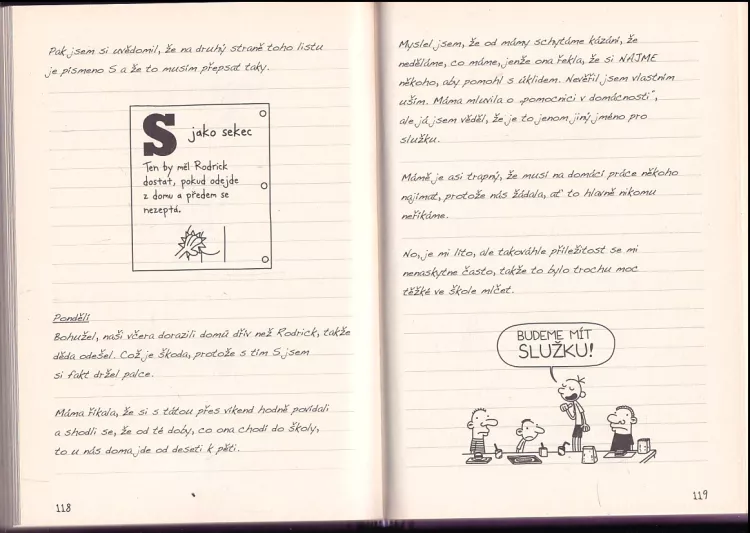 Pak jsem si uvědomil, že na druhý straně toho listu
je písmeno S a že to musím přepsat taky.
S jako sekec
Ten by měl Rodrick
dostat, pokud odejde
z domu a předem se
nezeptá.
Pondělí
Bohužel, naši včera dorazili domů dřív než Rodrick, takže
děda odešel. Což je škoda, protože s tím S jsem
si fakt držel palce.
Máma říkala, že si s tátou přes víkend hodně povídali
a shodli se, že od té doby, co ona chodí do školy,
to u nás doma jde od deseti k pěti.
118
Myslel jsem, že od mámy schytáme kázání, že
neděláme, co máme, jenže ona řekla, že si NAJME
někoho, aby pomohl s úklidem. Nevěřil jsem vlastním
uším. Máma mluvila o „pomocnici v domácnosti“,
ale já jsem věděl, že je to jenom jiný jméno pro
služku.
Mámě je asi trapný, že musí na domácí práce někoho
najímat, protože nás žádala, ať to hlavně nikomu
neříkáme.
No, je mi líto, ale takováhle příležitost se mi
nenaskytne často, takže to bylo trochu moc
těžké ve škole mlčet.
BUDEME MÍT
SLUŽKU!
119